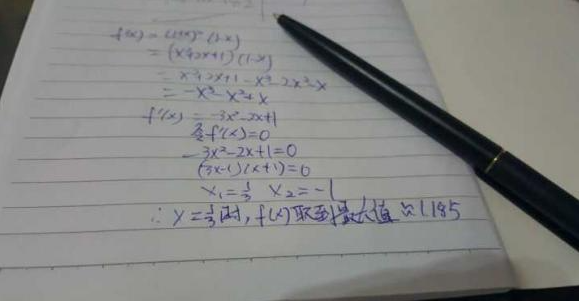 f(x) = (1+x)² (1-x)
= (x²+2x+1) (1-x)
= x²+2x+1 - x³-2x²-x
= -x³-x²+x
f'(x) = -3x²-2x+1
令f'(x)=0
-3x²-2x+1=0
(3x-1)(x+1)=0
x₁=1/3 x₂=-1
∴ x=1/3时, f(x)取到最大值≈1.185